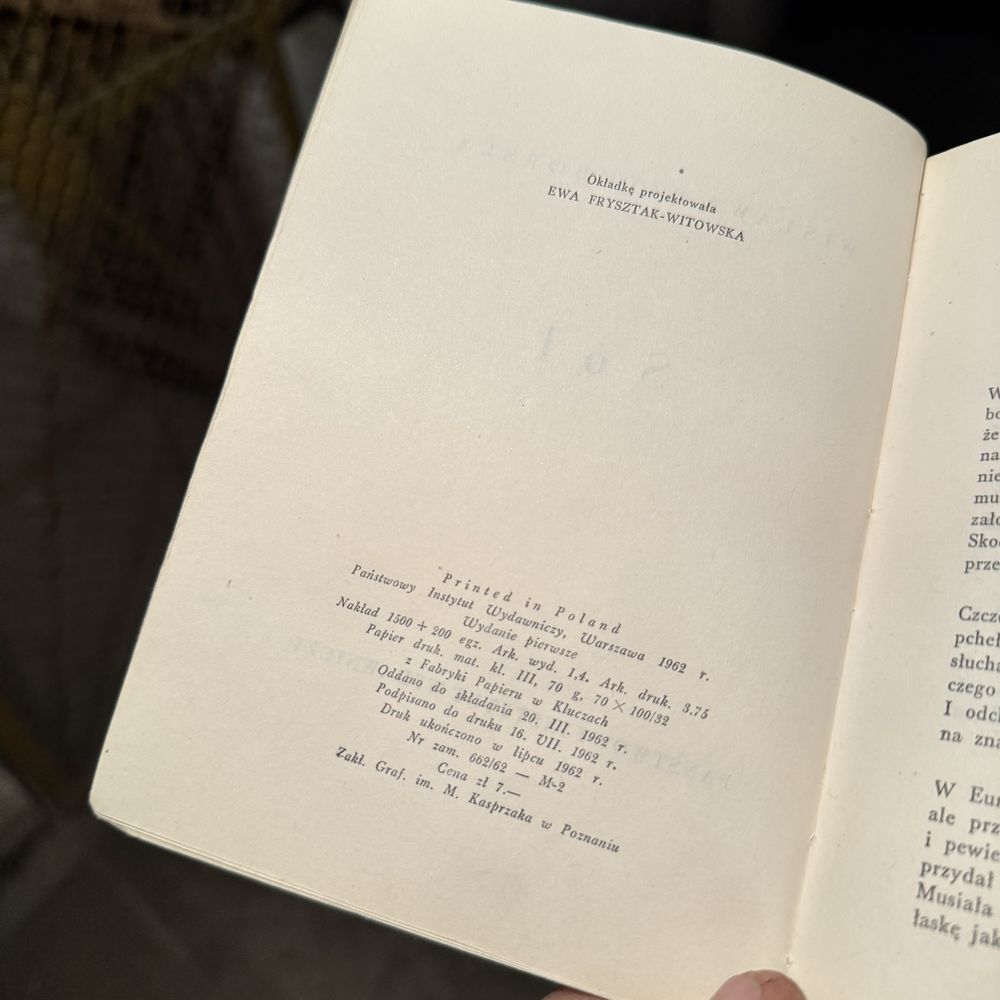 Okładkę projektowała
EWA FRYSZTAK-WITOWSKA
Printed in Poland
Państwowy Instytut Wydawniczy, Warszawa 1962 r.
Wydanie pierwsze
Nakład 1500 + 200 egz. Ark. wyd. 1,4. Ark. druk. 3.75
Papier druk. mat. kl. III, 70 g, 70 × 100/32
z Fabryki Papieru w Kluczach
Oddano do składania 20. III. 1962 r.
Podpisano do druku 16. VII. 1962 r.
Druk ukończono w lipcu 1962 r.
Nr zam. 662/62 — M-2
Cena zł 7.—
Zakł. Graf. im. M. Kasprzaka w Poznaniu
W
że
na
nie
prze
słucha
czego
I odc
na zna
W Eu
ale prz
i pewie
przydał
Musiała
łaskę jak